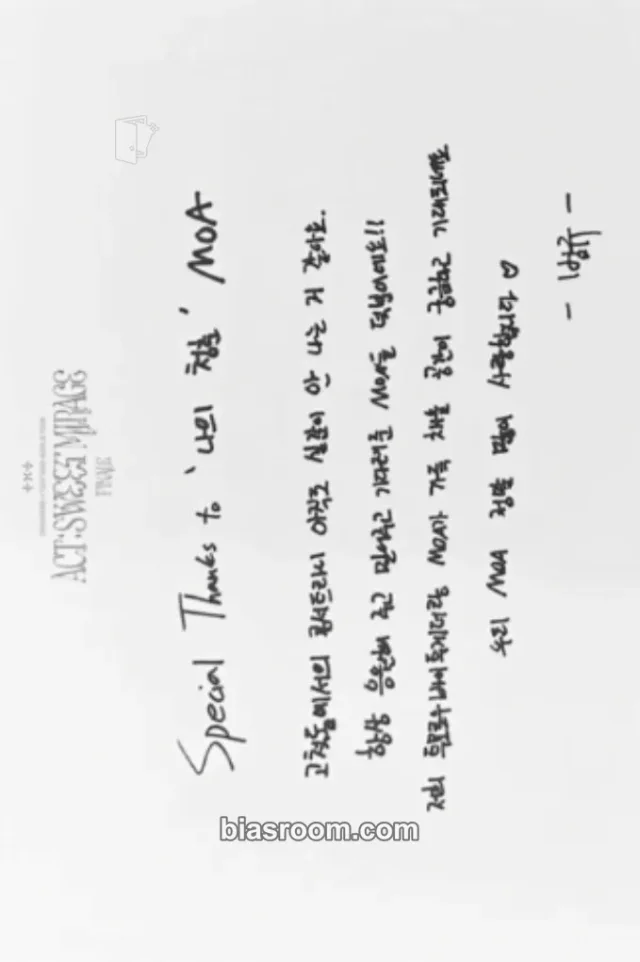 ACT : SWEET MIRAGE
FINALE
Special Thanks to '나의 청춘' MOA
고척돔에서의 콘서트라니 아직도 실감이 안 나는 거 같아요.
항상 응원해 주고 믿어주고 기다려준 MOA들 덕분이에요!!
저희 투모로우바이투게더랑 MOA가 가득 채울 공연이 기대되네요
우리 MOA 정말 많이 사랑합니다 ♡
biasroom.com